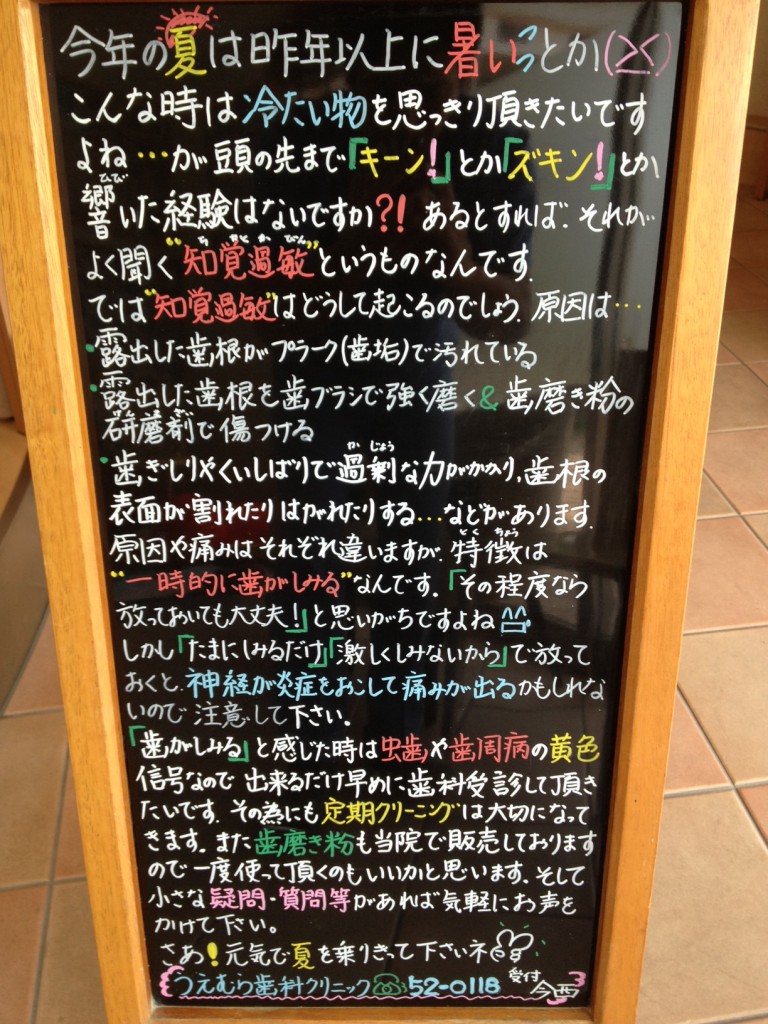 今年の夏は昨年以上に暑いっとか(><)
こんな時は冷たい物を思っきり頂きたいです
よね…が頭の先まで「キーン!」とか「ズキン!」とか
響いた経験はないですか?! あるとすれば、それが
よく聞く"知覚過敏"というものなんです。
では"知覚過敏"はどうして起こるのでしょう。原因は…
・露出した歯根がプラーク(歯垢)で汚れている
・露出した歯根を歯ブラシで強く磨く&歯磨き粉の
研磨剤で傷つける
・歯ぎしりやくいしばりで過剰な力がかかり、歯根の
表面が割れたりはがれたりする…などがあります。
原因や痛みはそれぞれ違いますが、特徴は
"一時的に歯がしみる"なんです。「その程度なら
放っておいても大丈夫!」と思いがちですよね
しかし「たまにしみるだけ」「激しくしみないから」で放って
おくと、神経が炎症をおこして痛みが出るかもしれな
いので注意して下さい。
「歯がしみる」と感じた時は虫歯や歯周病の黄色
信号なので出来るだけ早めに歯科受診して頂き
たいです。その為にも定期クリーニングは大切になって
きます。また歯磨き粉も当院で販売しております
ので一度使って頂くのもいいかと思います。そして
小さな疑問・質問等があれば気軽にお声を
かけて下さい。
さあ!元気で夏を乗りきって下さいネ
うえむら歯科クリニック☎52-0118 受付 今西